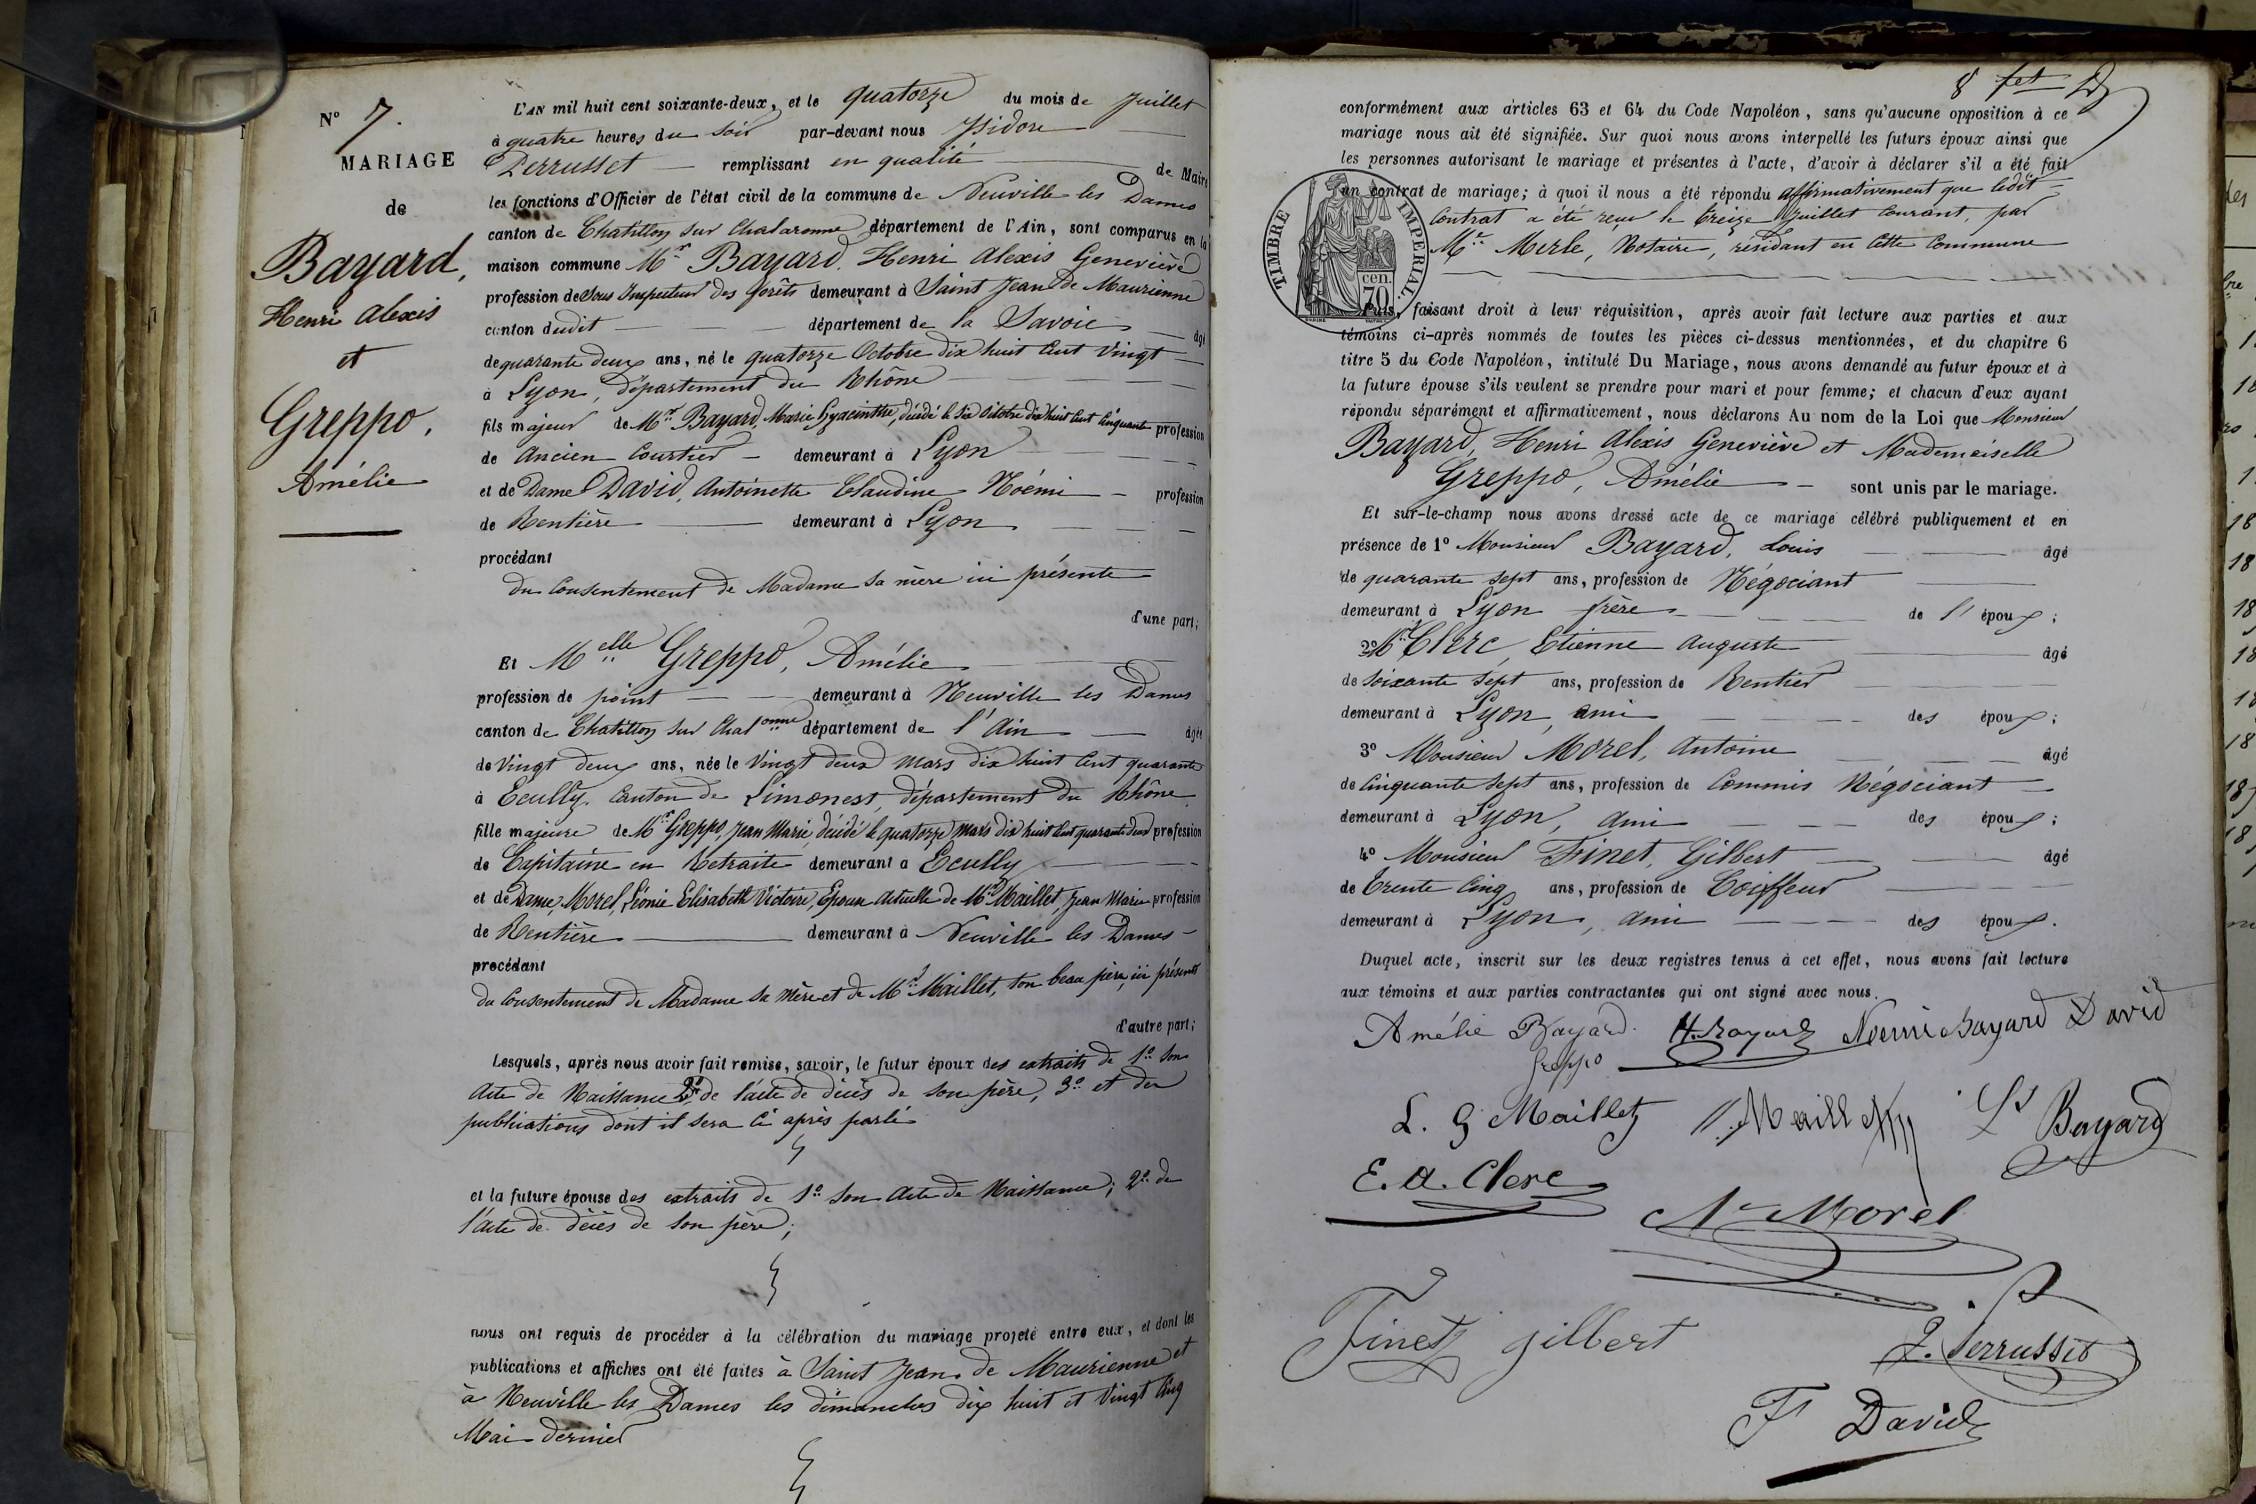 N° 7.
MARIAGE
de
Bayard,
Henri Alexis
et
Greppo,
Amélie
L'AN mil huit cent soixante-deux, et le quatorze du mois de Juillet
à quatre heures du soir par-devant nous Ysidore
Perrusset remplissant en qualité de Maire
les fonctions d'Officier de l'état civil de la commune de Neuville les Dames
canton de Chatillon sur Chalaronne département de l'Ain, sont comparus en la
maison commune Mr Bayard, Henri Alexis Geneviève
profession de Sous Inspecteur des forêts demeurant à Saint Jean de Maurienne
canton dudit département de la Savoie âgé
de quarante deux ans, né le quatorze Octobre dix huit Cent Vingt
à Lyon, département du Rhône
fils majeur de Mr Bayard, Marie Hyacinthe, décédé le six Octobre dix huit Cent Cinquante profession
de Ancien Courtier demeurant à Lyon
et de Dame David, Antoinette Claudine Noémi profession
de Rentière demeurant à Lyon
procédant
du Consentement de Madame sa mère ici présente
d'une part;
Et Melle Greppo, Amélie
profession de point demeurant à Neuville les Dames
canton de Chatillon sur Chalonne département de l'Ain âgée
de Vingt deux ans, née le Vingt deux Mars dix huit Cent quarante
à Ecully, Canton de Limonest, département du Rhône
fille majeure de Mr Greppo, Jean Marie, décédé le quatorze Mars dix huit Cent quarante deux profession
de Capitaine en Retraite demeurant à Ecully
et de Dame Morel, Léonie Elisabeth Victoire, Epouse Actuelle de Mr Maillet, Jean Marie profession
de Rentière demeurant à Neuville les Dames
procédant
du Consentement de Madame sa Mère et de Mr Maillet, son beau père, ici présents
d'autre part;
Lesquels, après nous avoir fait remise, savoir, le futur époux des extraits de 1° Son
Acte de Naissance 2° de l'acte de décès de son père, 3° et des
publications dont il sera Ci après parlé
et la future épouse des extraits de 1° Son Acte de Naissance; 2° de
l'Acte de décès de Son père;
nous ont requis de procéder à la célébration du mariage projeté entre eux, et dont les
publications et affiches ont été faites à Saint Jean de Maurienne et
à Neuville les Dames les dimanches dix huit et Vingt Cinq
Mai dernier
conformément aux articles 63 et 64 du Code Napoléon, sans qu'aucune opposition à ce
mariage nous ait été signifiée. Sur quoi nous avons interpellé les futurs époux ainsi que
les personnes autorisant le mariage et présentes à l'acte, d'avoir à déclarer s'il a été fait
un contrat de mariage; à quoi il nous a été répondu affirmativement que ledit
Contrat a été reçu le treize Juillet Courant, par
Me Merle, Notaire, résidant en Cette Commune
TIMBRE IMPERIAL.
70 cen.
Puis, faisant droit à leur réquisition, après avoir fait lecture aux parties et aux
témoins ci-après nommés de toutes les pièces ci-dessus mentionnées, et du chapitre 6
titre 5 du Code Napoléon, intitulé Du Mariage, nous avons demandé au futur époux et à
la future épouse s'ils veulent se prendre pour mari et pour femme; et chacun d'eux ayant
répondu séparément et affirmativement, nous déclarons Au nom de la Loi que Monsieur
Bayard, Henri Alexis Geneviève et Mademoiselle
Greppo, Amélie sont unis par le mariage.
Et sur-le-champ nous avons dressé acte de ce mariage célébré publiquement et en
présence de 1° Monsieur Bayard, Louis âgé
de quarante sept ans, profession de Négociant
demeurant à Lyon frère de l'époux;
2° Mr Clerc, Etienne Auguste âgé
de soixante sept ans, profession de Rentier
demeurant à Lyon, ami des époux;
3° Monsieur Morel, Antoine âgé
de Cinquante sept ans, profession de Commis Négociant
demeurant à Lyon, ami des époux;
4° Monsieur Finet, Gilbert âgé
de Trente Cinq ans, profession de Coiffeur
demeurant à Lyon, ami des époux.
Duquel acte, inscrit sur les deux registres tenus à cet effet, nous avons fait lecture
aux témoins et aux parties contractantes qui ont signé avec nous.
Amélie Bayard H. Bayard Noémi Bayard David
Greppo
L. G Maillet Maillet Ls Bayard
E. A. Clerc
An Morel
Finet gilbert
I. Perrusset
Fs David